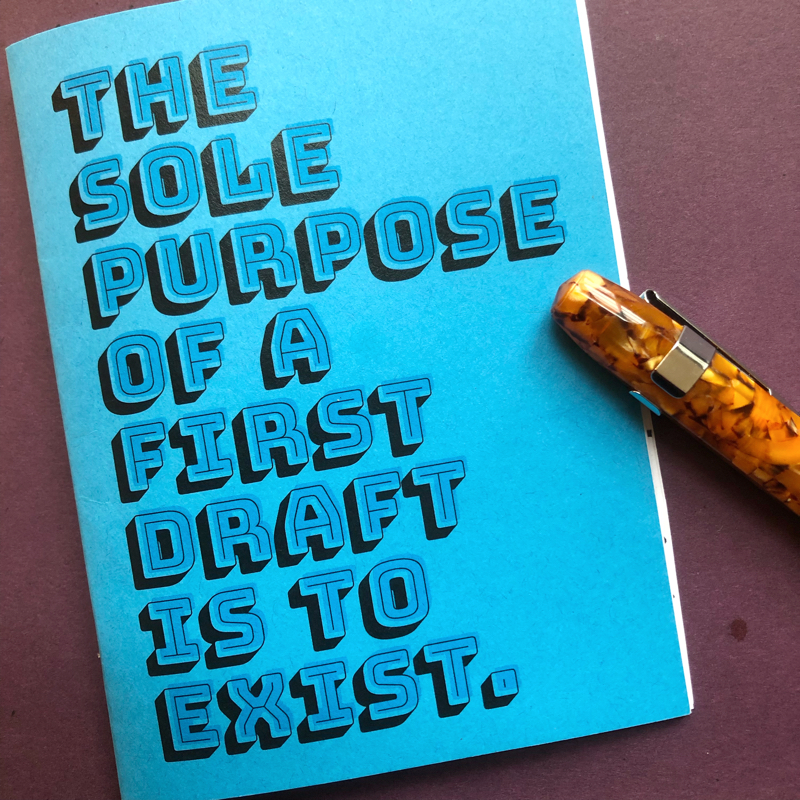 THE
SOLE
PURPOSE
OF A
FIRST
DRAFT
IS TO
EXIST.